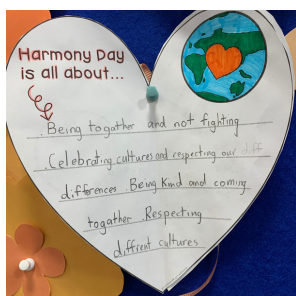 Harmony Day
is all about...
.Being togather and not fighting
.Celebrating cultures and respecting our diff
differences Being Kind and coming
togather .Respecting
diffrent cultures